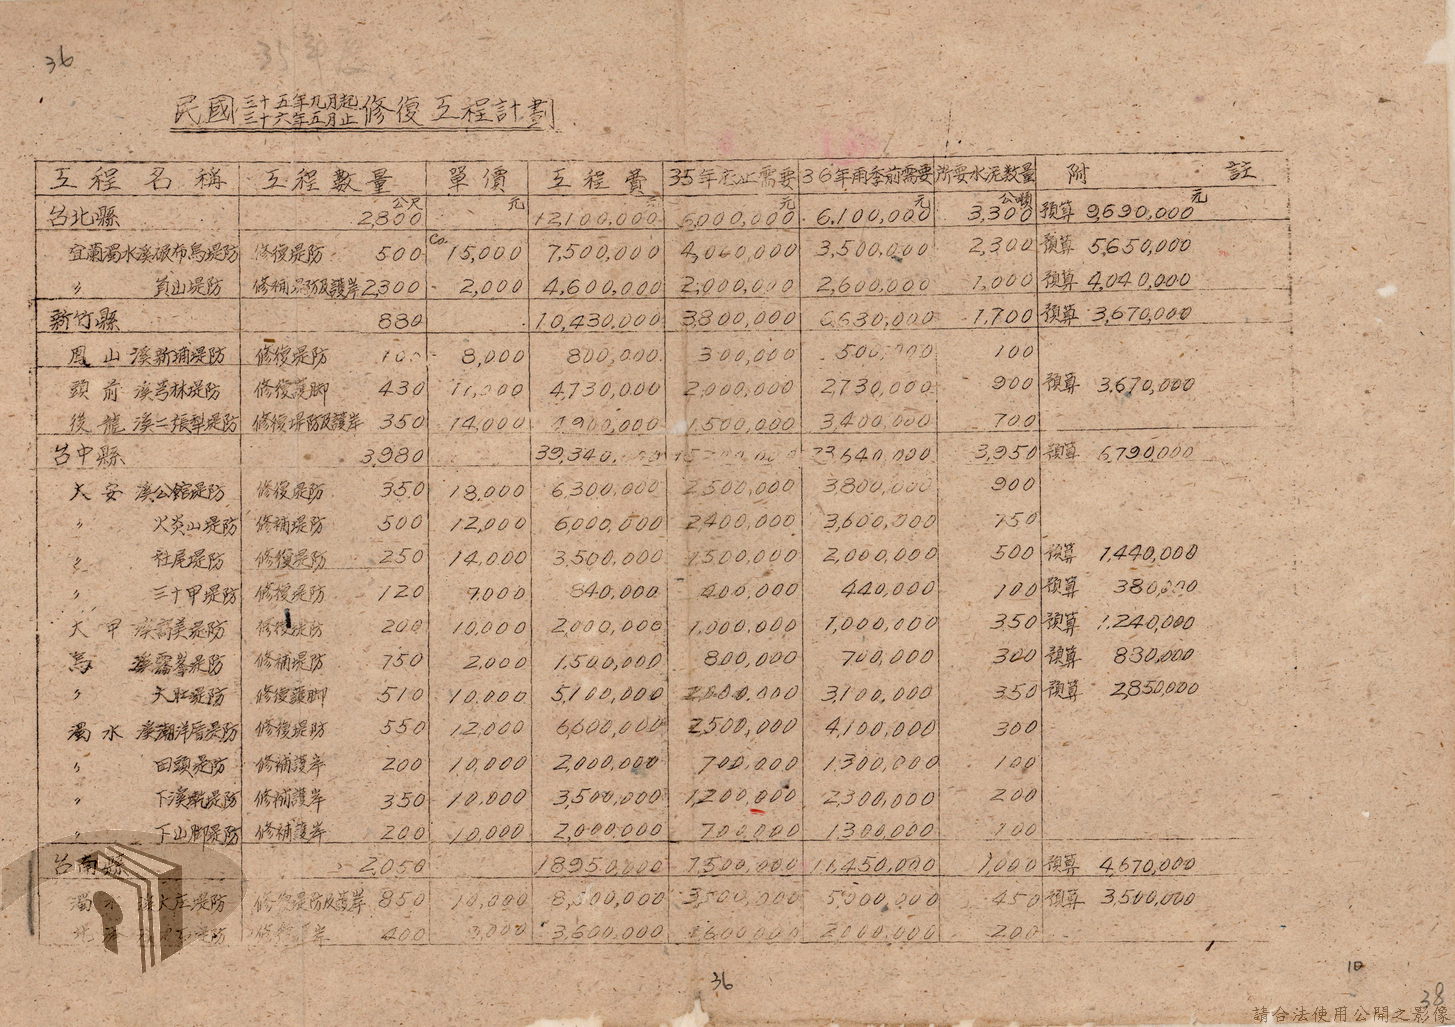 36
35年度
民國三十五年九月起三十六年五月止修復工程計劃
工程名稱 工程數量 單價 工程費 35年底止需要 36年雨季前需要 所要水泥数量 附註
台北縣 2,800公尺 元 12,100,000元 6,000,000元 6,100,000元 3,300公噸 預算 9,690,000元
宜蘭濁水溪破布烏堤防 修復堤防 500 15,000 7,500,000 4,000,000 3,500,000 2,300 預算 5,650,000
〃 員山堤防 修補堤防及護岸 2,300 2,000 4,600,000 2,000,000 2,600,000 1,000 預算 4,040,000
新竹縣 880 10,430,000 3,800,000 6,630,000 1,700 預算 3,670,000
鳳山溪新埔堤防 修復堤防 100 8,000 800,000 300,000 500,000 100
頭前溪芎林堤防 修復護脚 430 11,000 4,730,000 2,000,000 2,730,000 900 預算 3,670,000
後龍溪二張犁堤防 修復堤防及護岸 350 14,000 4,900,000 1,500,000 3,400,000 700
台中縣 3,980 39,340,000 15,700,000 23,640,000 3,950 預算 6,790,000
大安溪公館堤防 修復堤防 350 18,000 6,300,000 2,500,000 3,800,000 900
〃 火炎山堤防 修補堤防 500 12,000 6,000,000 2,400,000 3,600,000 750
〃 社尾堤防 修復堤防 250 14,000 3,500,000 1,500,000 2,000,000 500 預算 1,440,000
〃 三十甲堤防 修復堤防 120 7,000 840,000 400,000 440,000 100 預算 380,000
大甲溪高美堤防 修復堤防 200 10,000 2,000,000 1,000,000 1,000,000 350 預算 1,240,000
烏溪霧峯堤防 修補堤防 750 2,000 1,500,000 800,000 700,000 300 預算 830,000
〃 大肚堤防 修復護脚 510 10,000 5,100,000 2,000,000 3,100,000 350 預算 2,850,000
濁水溪潮洋厝堤防 修復堤防 550 12,000 6,600,000 2,500,000 4,100,000 300
〃 田頭堤防 修補護岸 200 10,000 2,000,000 700,000 1,300,000 100
〃 下溪墘堤防 修補護岸 350 10,000 3,500,000 1,200,000 2,300,000 200
〃 下山脚堤防 修補護岸 200 10,000 2,000,000 700,000 1,300,000 100
台南縣 2,050 18,950,000 7,500,000 11,450,000 1,000 預算 4,670,000
濁水溪大庄堤防 修復堤防及護岸 850 10,000 8,500,000 3,500,000 5,000,000 450 預算 3,500,000
北 堤防 修 護岸 400 9,000 3,600,000 1,600,000 2,000,000 200
36
10
38
請合法使用公開之影像